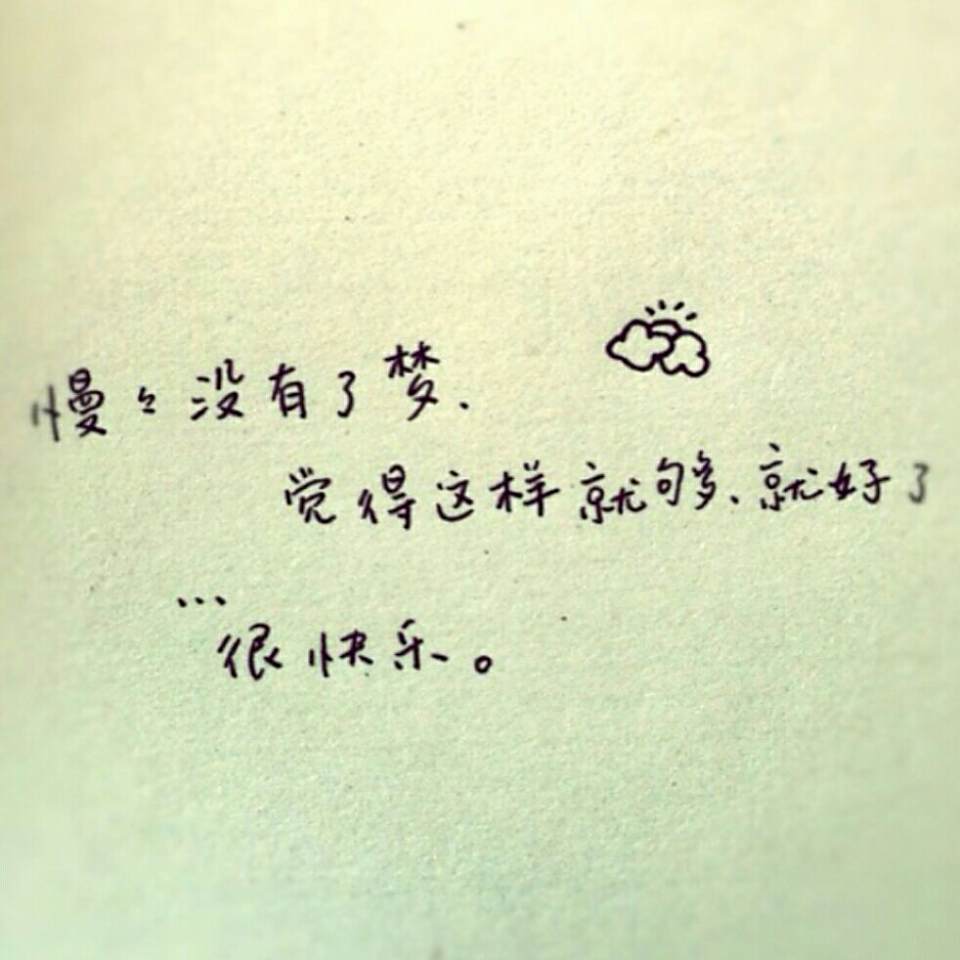 慢々没有了梦.
觉得这样就够多、就好了
...
很快乐。